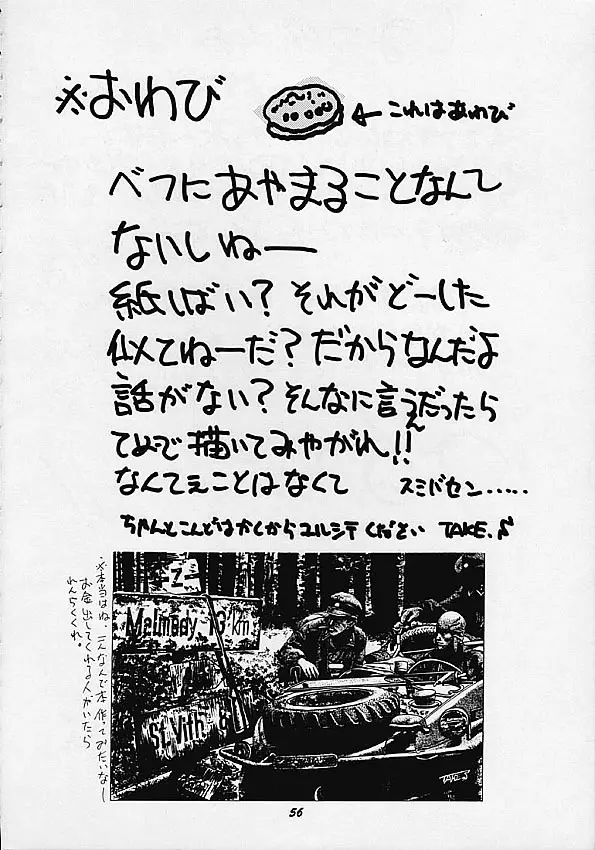 ※おわび
←これはあわび
べつにあやまることなんて
ないしねー
紙しばい？それがどーした
似てねーだ？だからなんだよ
話がない？そんなに言うんだったら
てめーで描いてみやがれ!!
なんてぇことはなくて スミバセン……
ちゃんとこんどはかくからユルシテください TAKE.♪
※本当はね、こんなんで本作ってみたいなー
お金出してくれる人がいたら
れんらくくれ。
Z
Malmedy 13 km
St.Vith 8
TAKE♪
56